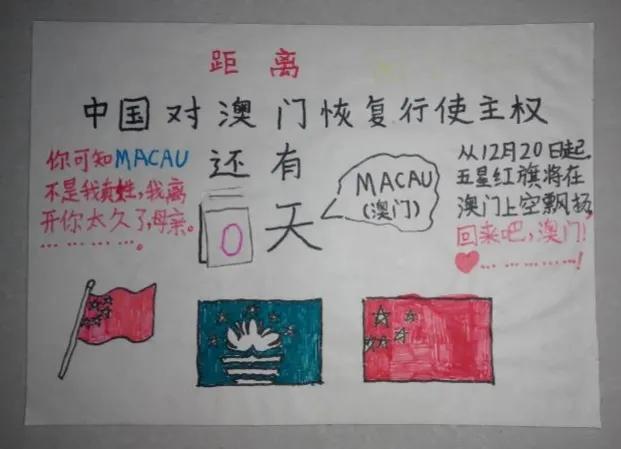 距离
中国对澳门恢复行使主权
你可知MACAU
不是我真姓,我离
开你太久了,母亲。
…………。
还有
0天
MACAU
(澳门)
从12月20日起,
五星红旗将在
澳门上空飘扬,
回来吧,澳门!
…………!